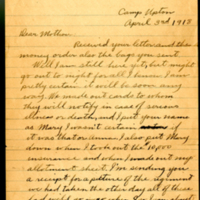 Camp Upton
April 3rd 1918
Dear Mother,
Received your letter and the
money order also the bags you sent.
Well I am still here yet, but might
go out to night for all I know. I am
pretty certain it will be soon any
way. We made out cards to whom
they will notify in case of serious
illness or death, and I put your name
as Mary I wasn't certain
it was that or Anna. I also put Mary
down when I took out the 10,000
insurance and when I made out my
allotment sheet. I'm sending you
a receipt for a picture of the regiment
we had taken the other day all of these